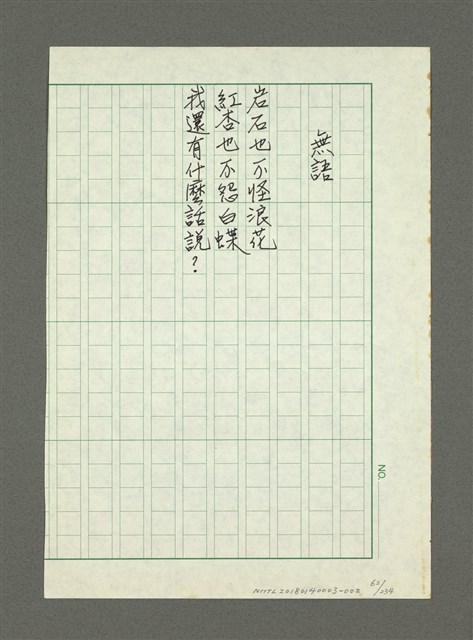 無語
岩石也不怪浪花
紅杏也不怨白蝶
我還有什麼話說？
NO.
62/234
NMTL20180140003-002